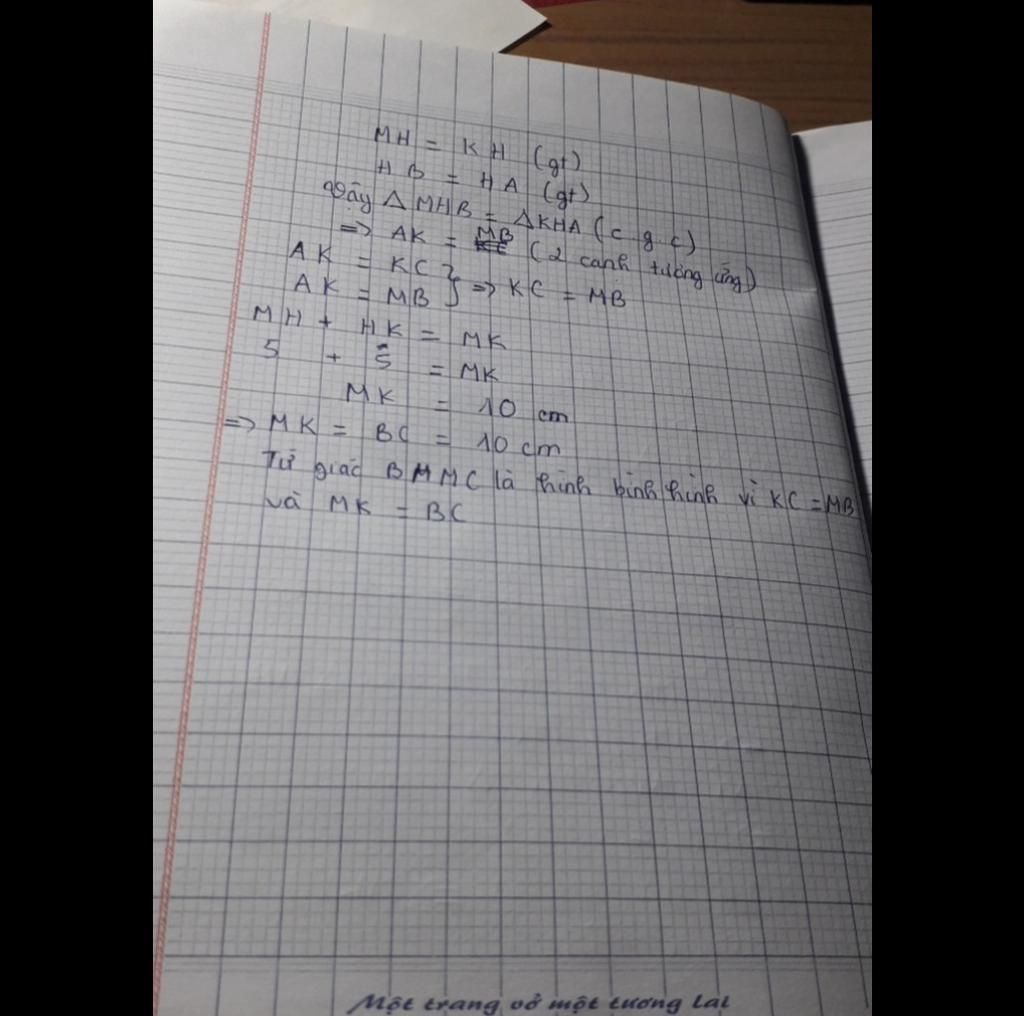 MH = KH (gt)
HB = HA (gt)
Vậy △MHB = △KHA (c.g.c)
=> AK = MB (2 cạnh tương ứng)
AK = KC } => KC = MB
AK = MB
MH + HK = MK
5 + 5 = MK
MK = 10 cm
=> MK = BC = 10 cm
Tứ giác BMMC là hình bình hình vì KC = MB
và MK = BC
Một trang vở một tương lai